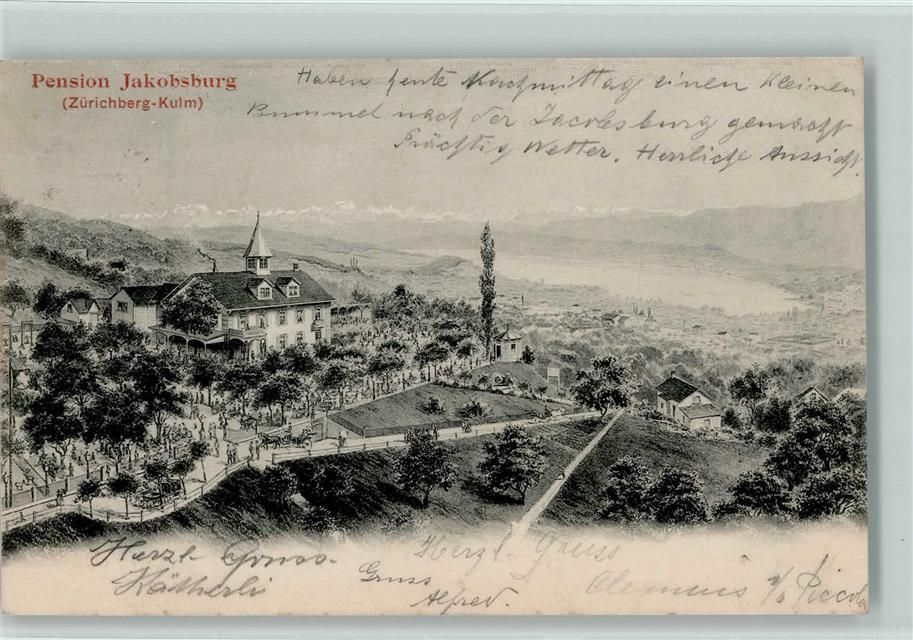 Pension Jakobsburg
(Zürichberg-Kulm)
Haben heute Nachmittag einen kleinen
Bummel nach der Jacobsburg gemacht
Prächtig Wetter. Herrliche Aussicht.
Herzl. Gruss.
Kätherli
Gruss
Alfred.
Herzl. Gruss
Clemens